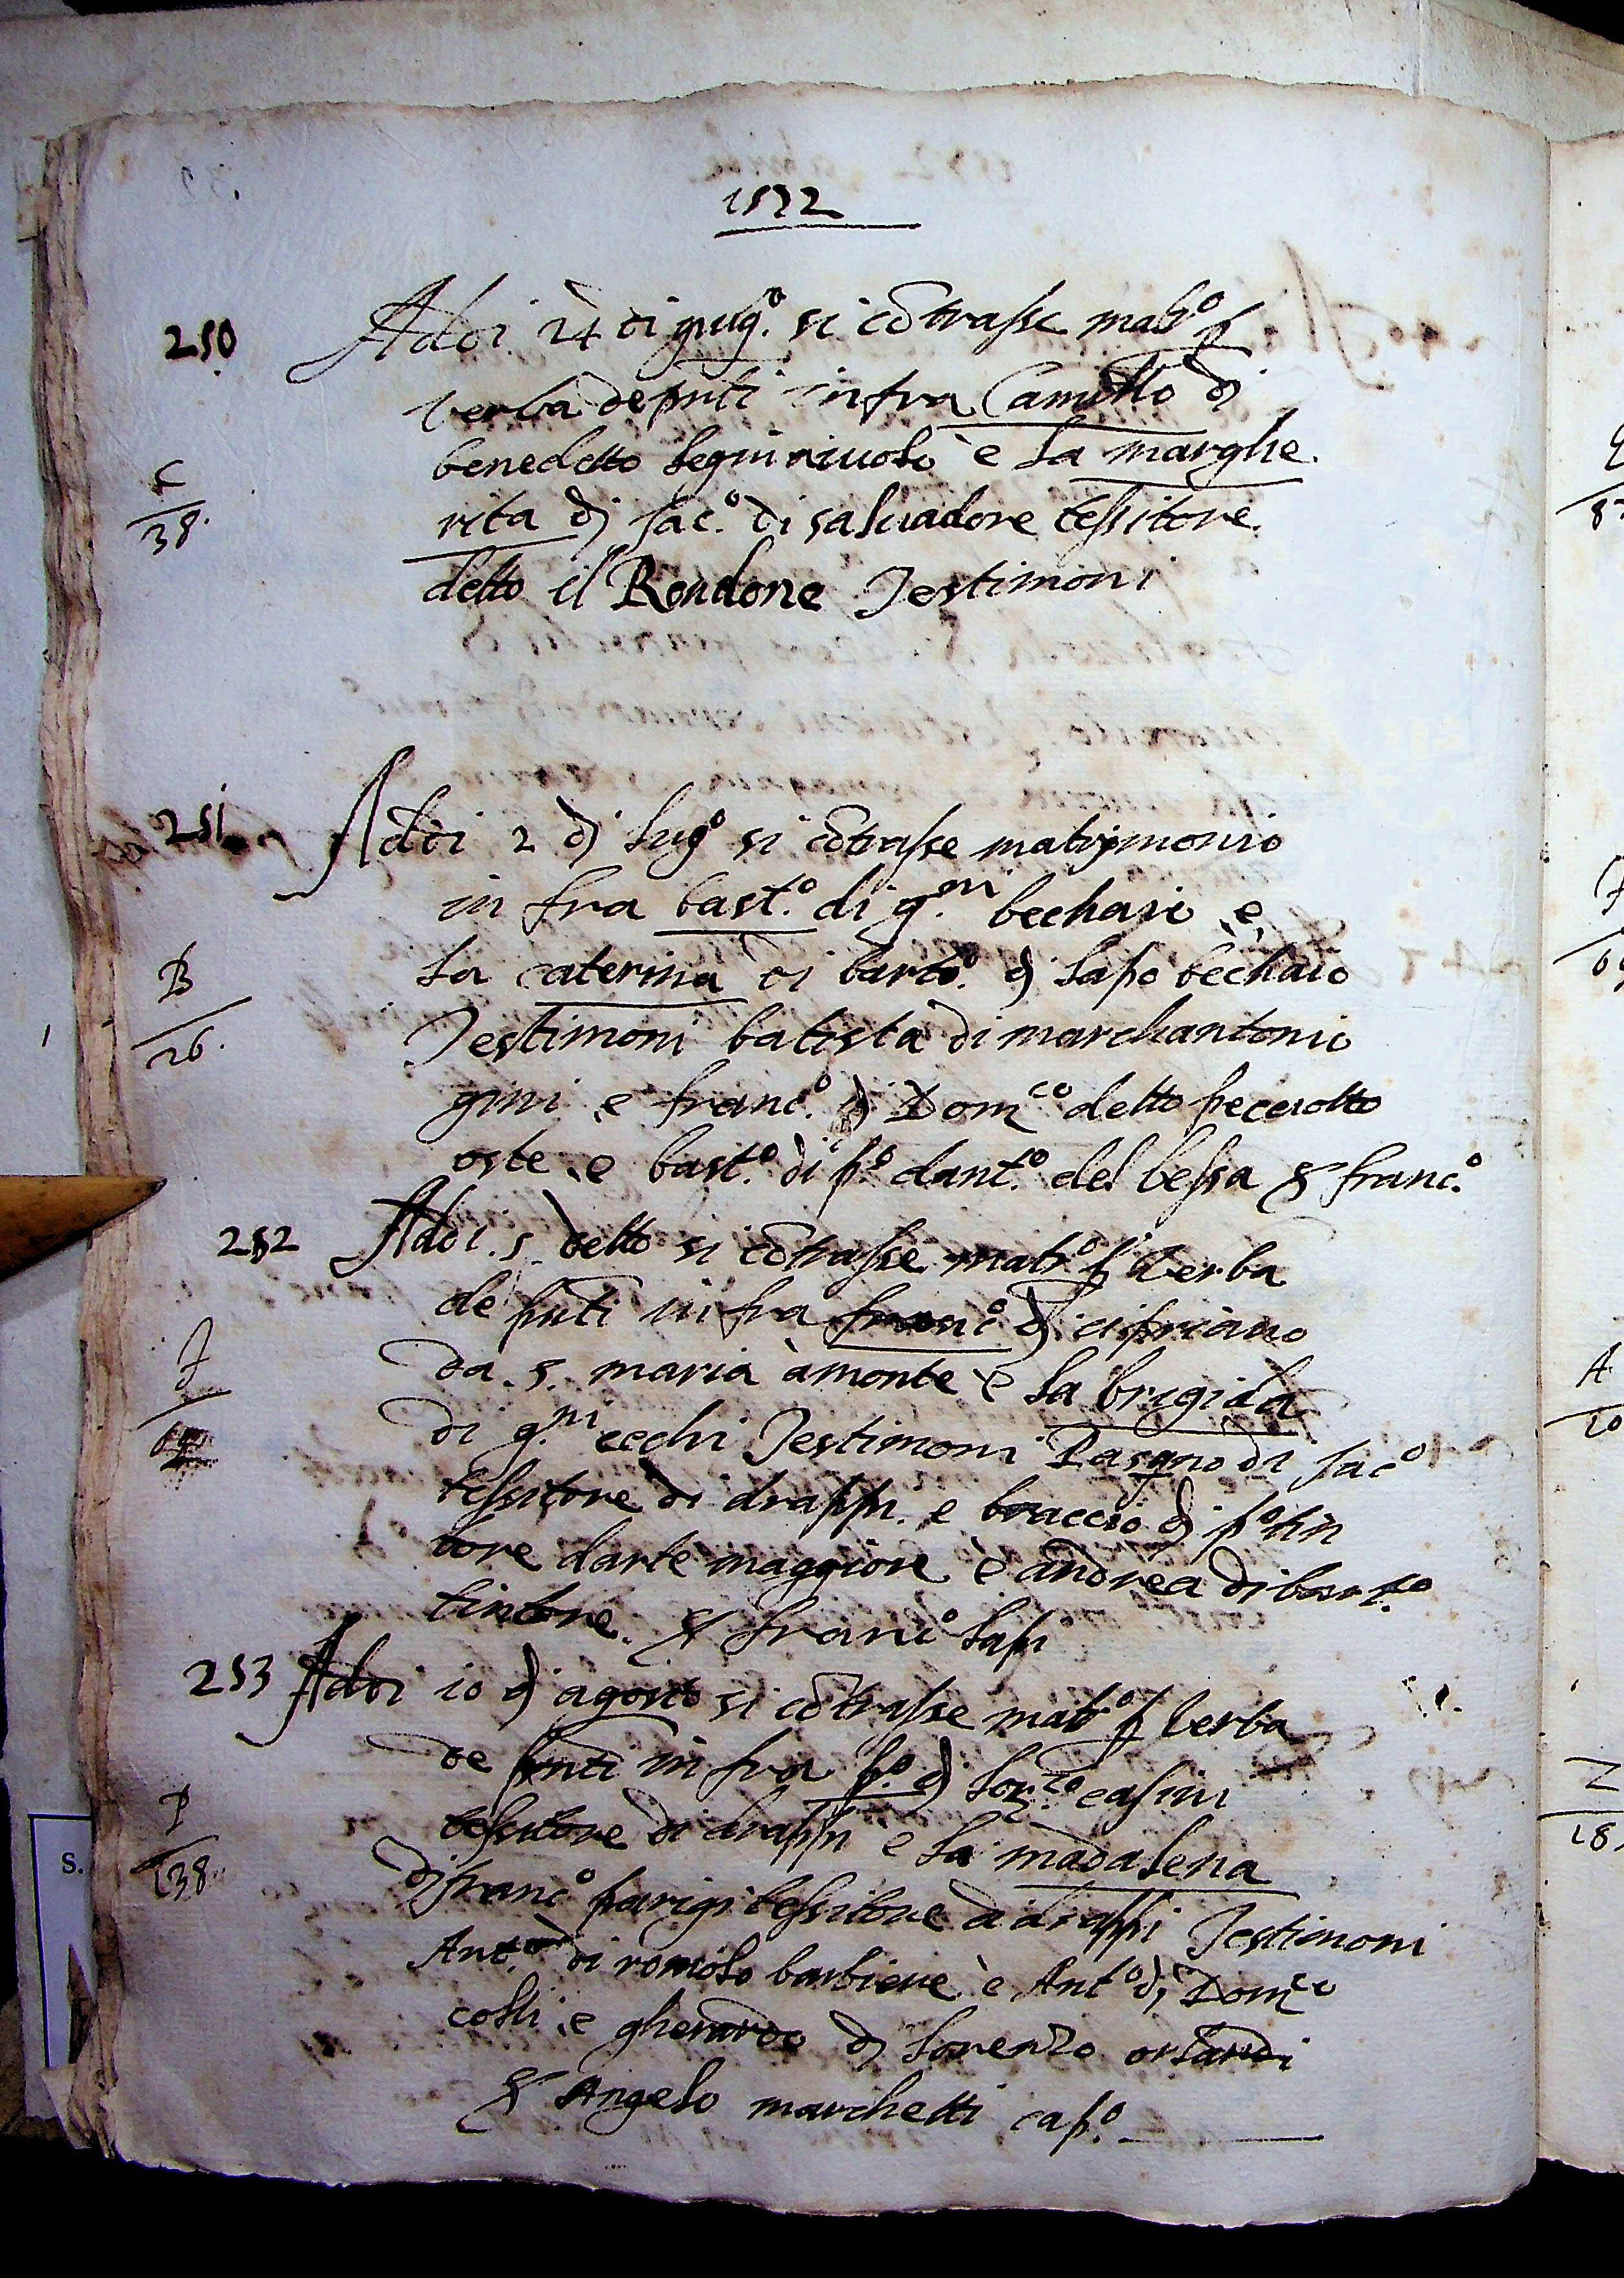 1572
250
Adoi 24 di giug.o si cõtrasse matr.o p
verba de pnti infra Camillo di
benedetto legniaiuolo è la marghe
C
38.
rita di Jac.o di saluadore tessitore
detto il Rondone Testimoni
251
Adoi 2 di lug.o si cõtrasse matrimonio
in fra bast.o di g.ni bechaio e
B
26.
la caterina di bart.o di lapo bechaio
Testimoni batista di marchantonio
gini e franc.o di Dom.co detto
oste e bast.o di p.o dant.o del bessa & franc.o
252
Adoi 5 detto si cõtrasse matr.o p verba
de pnti infra franc.o di cipriano
J
da s. maria à monte è la brigida
di g.ni cechi Testimoni Pasquo di Jac.o
tessitore di drappi e braccio di p.o tin
tore darte maggiore è andrea di bart.o
tintore & franc.o lapi
253
Adoi 10 di agosto si cõtrasse matr.o p verba
de pnti in fra p.o di lor.zo casini
P
138.
tessitore di drappi e la madalena
di franc.o parigi tessitore di drappi Testimoni
Ant.o di romolo barbiere è Ant.o di Dom.co
colli e gherardo di lorenzo orlandi
& Angelo marchetti cap.o
S.
A
10
Z
18